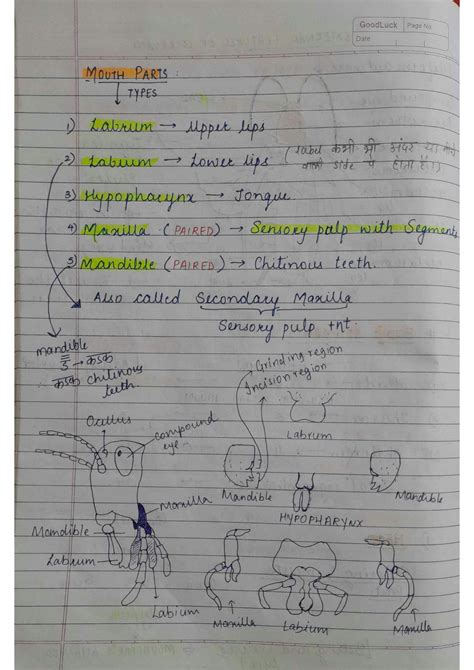 GoodLuck Page No.
Date
MOUTH PARTS :
TYPES
1) Labrum → Upper lips
2) Labium → Lower lips (label कभी भी अंदर या नीचे
वाली side पे होता है।)
3) Hypopharynx → Tongue
4) Maxilla (PAIRED) → Sensory palp with Segments
5) Mandible (PAIRED) → Chitinous teeth.
Also called Secondary Maxilla
Sensory pulp tnt
mandible
ड → कड़क
कड़क chitinous
teeth.
Grinding region
Incision region
Labrum
Ocellus
compound
eye
Maxilla
Mandible
Labrum
Labium
Mandible
HYPOPHARYNX
Mandible
Maxilla
Labium
Maxilla